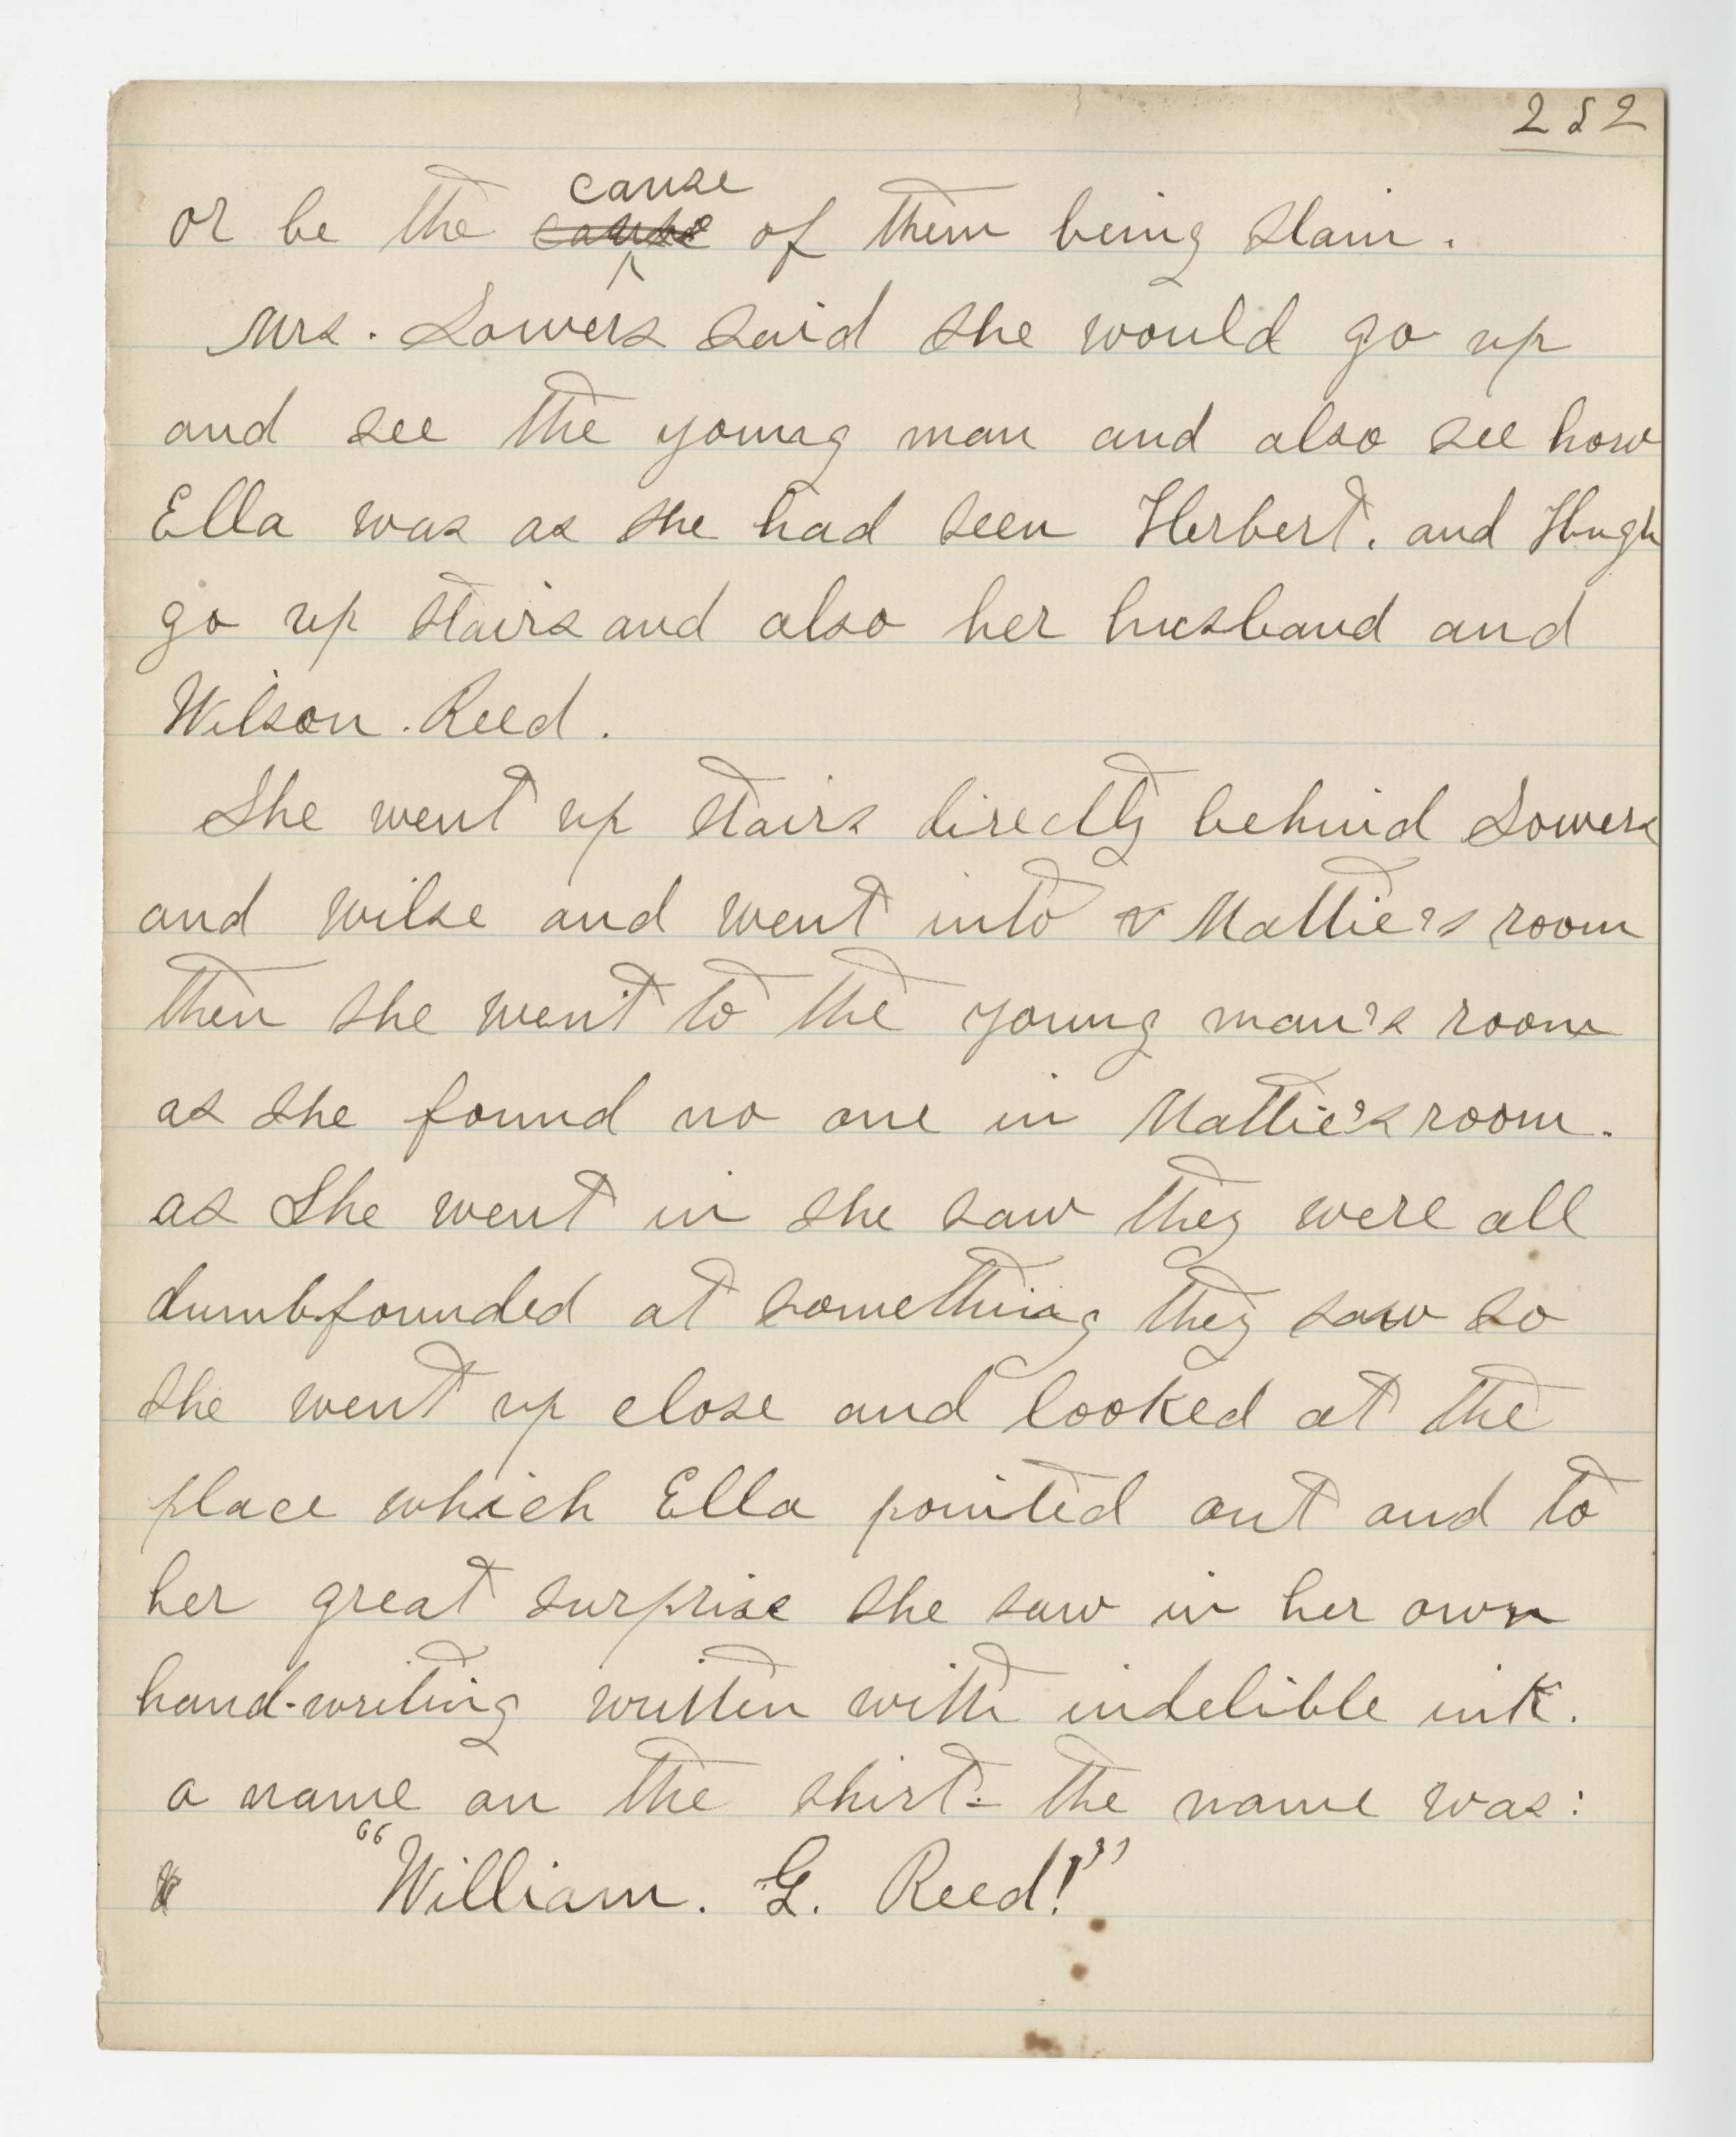 252
cause
or be the cause of them being slain.
Mrs. Sowers said she would go up
and see the young man and also see how
Ella was as she had seen Herbert. and Hugh
go up stairs and also her husband and
Wilson. Reed.
She went up stairs directly behind Sowers
and wilse and went into Mattie's room
then she went to the young man's room
as she found no one in Mattie's room.
as She went in she saw they were all
dumbfounded at something they saw so
she went up close and looked at the
place which Ella pointed out and to
her great surprise she saw in her own
hand-writing written with indelible ink.
a name on the shirt - the name was:
"William. G. Reed!"